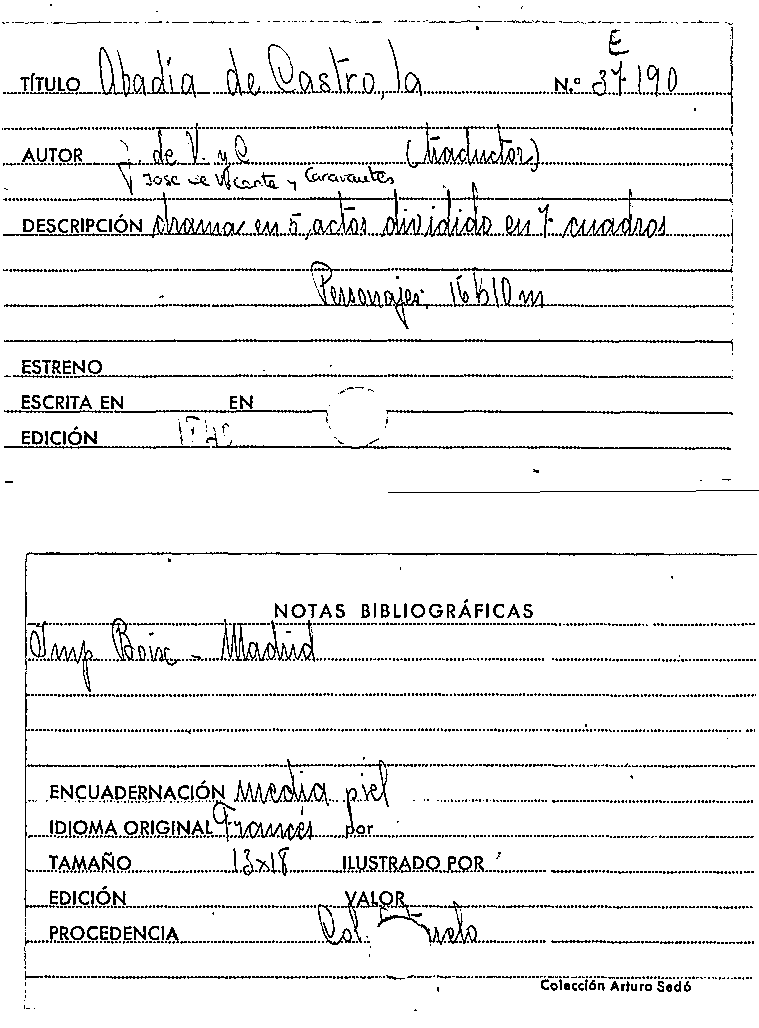 E
TÍTULO Abadía de Castro, la N.º 37-190
AUTOR J. de V. y C (traductor)
José de Vicente y Caravantes
DESCRIPCIÓN drama en 5 actos dividido en 7 cuadros
Personajes: 16 h 10 m
ESTRENO
ESCRITA EN EN
EDICIÓN
NOTAS BIBLIOGRÁFICAS
Imp Boix - Madrid
ENCUADERNACIÓN media piel
IDIOMA ORIGINAL Francés por
TAMAÑO 13x18 ILUSTRADO POR
EDICIÓN VALOR
PROCEDENCIA Col.
Colección Arturo Sedó